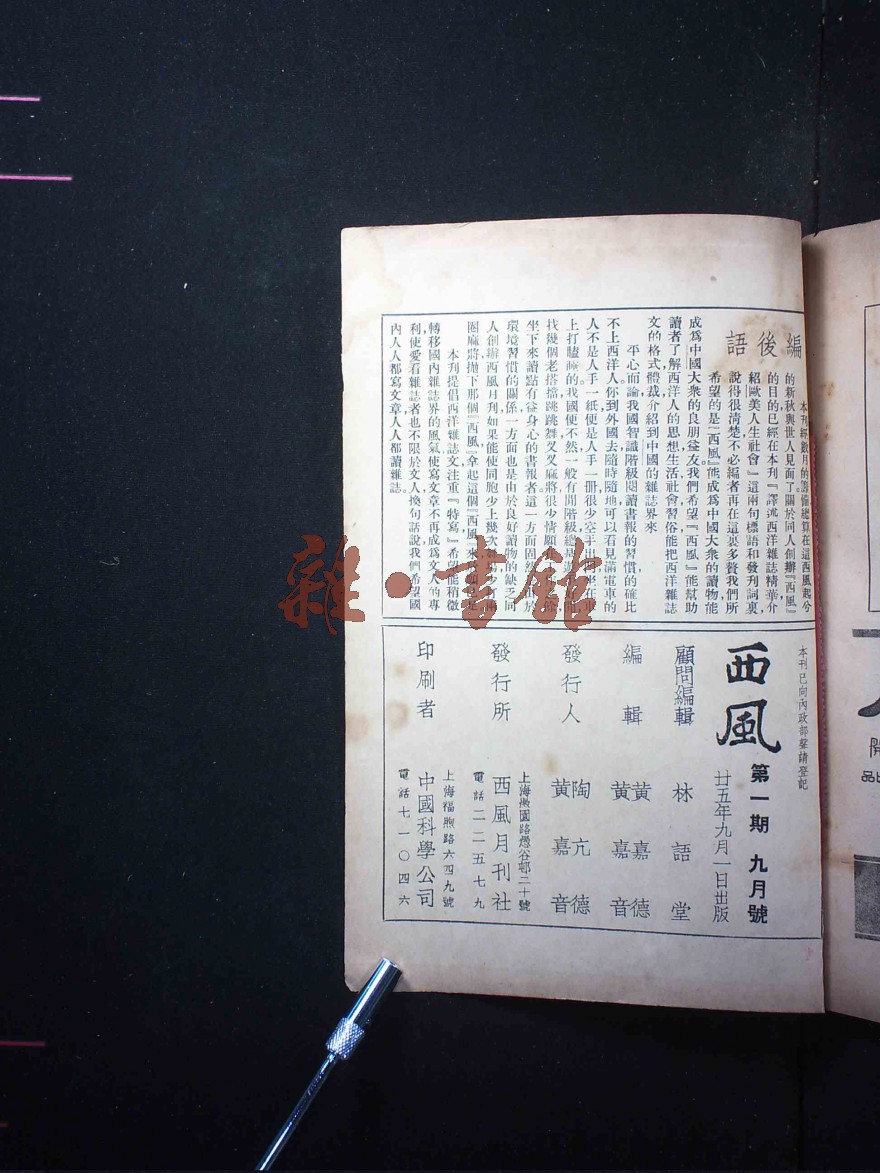 編後語
本刊經數月的籌備總算在這西風起兮
的新秋與世人見面了關於同人創辦『西風』
的目的已經在本刊『譯述西洋雜誌精華介
紹歐美人生社會』這兩句標語和發刊詞裏
說得很清楚不必編者再在這裏多贅我們所
希望的是『西風』能成爲中國大衆的讀物能
成爲中國大衆的良朋益友我們希望『西風』能幫助
讀者了解西洋人的思想生活社會習俗能把西洋雜誌
文的格式體裁介紹到中國的雜誌界來
平心而論我國智識階級閱讀書報的習慣的確比
不上西洋人你到外國去隨時隨地可以看見滿電車的
人不是人手一紙便是人手一册很少空手出
上打瞌睡的我國便不然一般有閒階級總是
找幾個老搭擋跳跳舞叉叉麻將很少情願
坐下來讀點有益身心的書報者這一方面固然
環境習慣的關係一方面也是由於良好讀物的缺乏同
人創辦西風月刊如果能使同胞少上幾次
圈麻將拋下那個『西風』拿起這個『西風』來
本刊提倡西洋雜誌文注重『特寫』希望能稍微
轉移國內雜誌界的風氣使寫文章不再成爲文人的專
利使愛看雜誌者也不限於文人換句話說我們希望國
內人人都寫文章人人都讀雜誌。
本刊已向內政部聲請登記
西風
第一期 九月號
廿五年九月一日出版
顧問編輯 林語堂
編輯 黃嘉德
黃嘉音
發行人 陶亢德
黃嘉音
上海愚園路愚谷邨二十號
發行所 西風月刊社
電話二二五七九
上海福煦路六四九號
印刷者 中國科學公司
電話七一〇四六
雜·書館